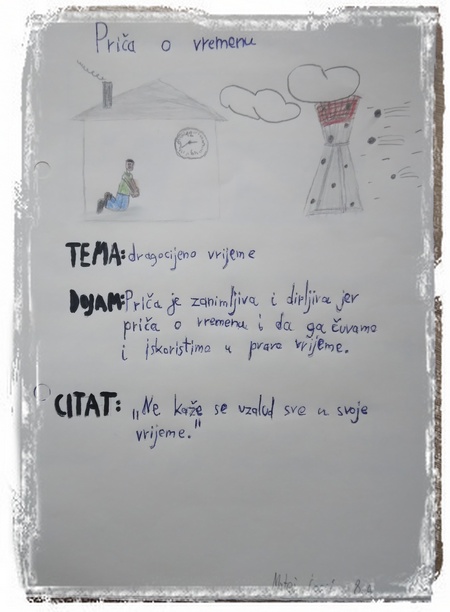 Priča o vremenu
TEMA: dragocijeno vrijeme
DOJAM: Priča je zanimljiva i dirljiva jer
priča o vremenu i da ga čuvamo
i iskoristimo u pravo vrijeme.
CITAT: „Ne kaže se uzalud sve u svoje
vrijeme."
Matej